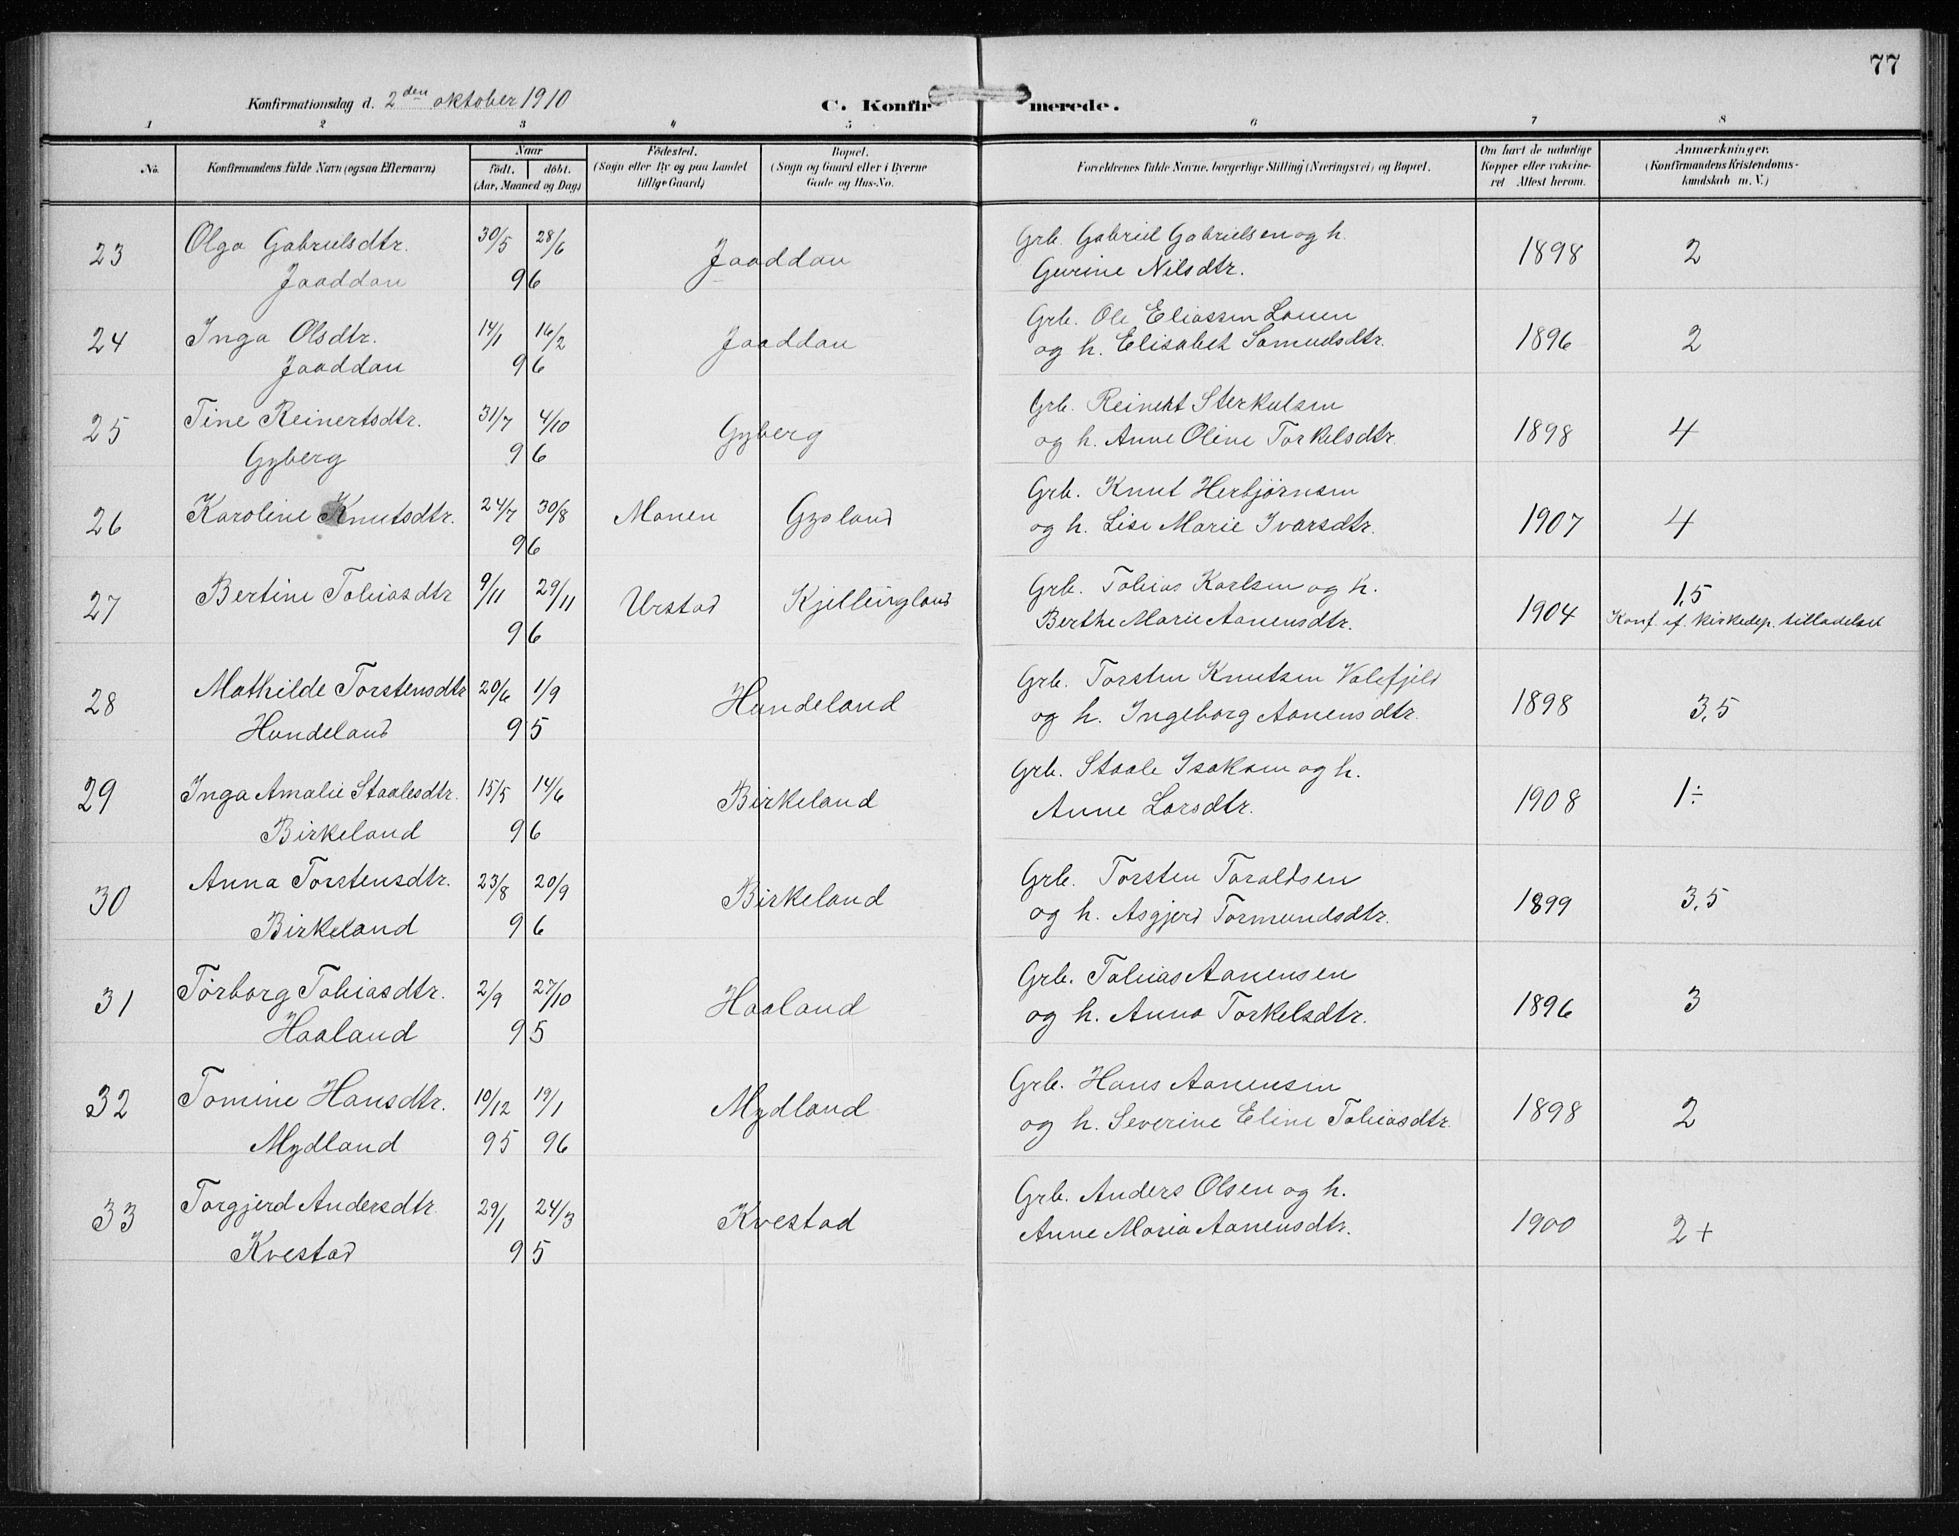 77
Konfirmationsdag d. 2den oktober 1910
C. Konfirmerede.
1 2 3 4 5 6 7 8
No.
Konfirmandens fulde Navn (ogsaa Efternavn)
Naar
födt. döbt.
(Aar, Maaned og Dag)
Födested.
(Sogn eller By og paa Landet
tillige Gaard)
Bopæl.
(Sogn og Gaard eller i Byerne
Gade og Hus-No.
Forældrenes fulde Navne, borgerlige Stilling (Næringsvei) og Bopæl.
Om havt de naturlige
Kopper eller vaccine-
ret Attest herom.
Anmærkninger.
(Konfirmandens Kristendoms-
kundskab m. V.)
23 Olga Gabrielsdtr. 30/5 28/6 Jaaddan Grb. Gabriel Gabrielsen og h. 1898 2
Jaaddan 96 Gurine Nilsdtr.
24 Inga Olsdtr. 14/1 16/2 Jaaddan Grb. Ole Eliassen Lauen 1896 2
Jaaddan 96 og h. Elisabet Samuelsdtr.
25 Tine Reinertsdtr. 31/7 4/10 Gyberg Grb. Reinert Sterkulsen 1898 4
Gyberg 96 og h. Anne Oline Torkelsdtr.
26 Karoline Knutsdtr. 24/7 30/8 Monen Gysland Grb. Knut Herbjørnsen 1907 4
96 og h. Lise Marie Ivarsdtr.
27 Bertine Tobiasdtr 9/11 29/11 Urstad Kjellingland Grb. Tobias Karlsen og h. 1904 1,5
96 Berthe Marie Aanensdtr. Konf. ef. kirkedep. tilladelse
28 Mathilde Torstensdtr 20/6 1/9 Hundeland Grb. Torsten Knutsen Valefjeld 1898 3,5
Hundeland 95 og h. Ingeborg Aanensdtr.
29 Inga Amalie Staalesdtr. 15/5 14/6 Birkeland Grb. Staale Isaksen og h. 1908 1÷
Birkeland 96 Anne Larsdtr.
30 Anna Torstensdtr. 23/8 20/9 Birkeland Grb. Torsten Taraldsen 1899 3,5
Birkeland 96 og h. Asgjerd Tormundsdtr.
31 Torborg Tobiasdtr. 2/9 27/10 Haaland Grb. Tobias Aanensen 1896 3
Haaland 95 og h. Anna Torkelsdtr.
32 Tomine Hansdtr. 10/12 19/1 Mydland Grb. Hans Aanensen 1898 2
Mydland 95 96 og h. Severine Eline Tobiasdtr.
33 Torgjerd Andersdtr. 29/1 24/3 Kvestad Grb. Anders Olsen og h. 1900 2+
Kvestad 95 Anne Maria Aanensdtr.